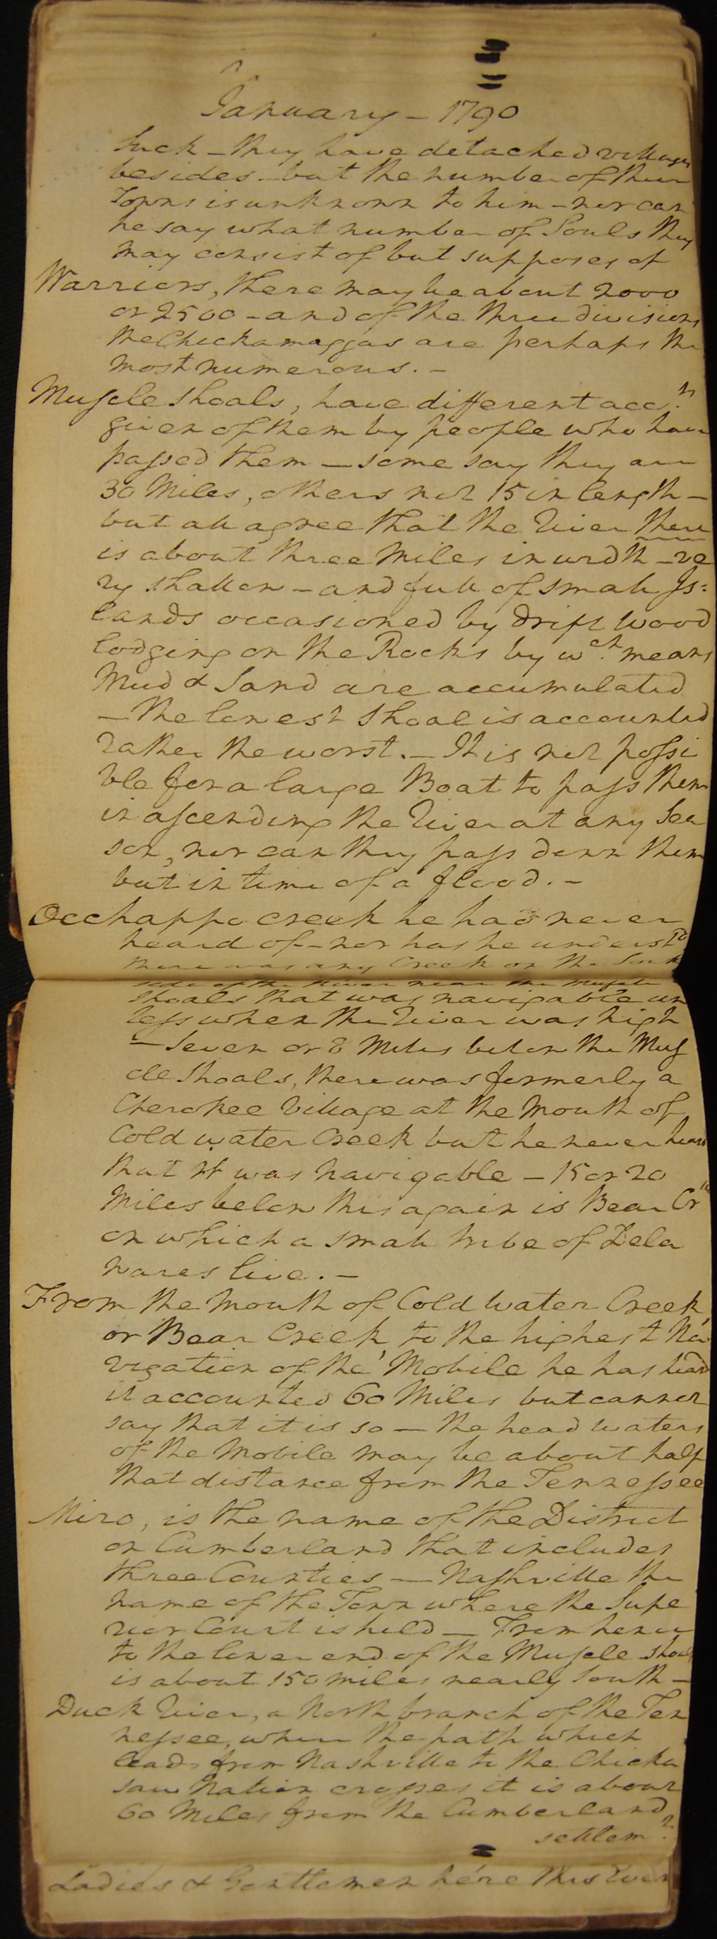 January - 1790
Suck - they have detached villages
besides - but the number of their
Towns is unknown to him - nor can
he say what number of Souls they
may consist of but supposes of
Warriors, there may be about 2000
or 2500 - and of the three divisions
the Chickamaggas are perhaps the
most numerous. -
Muscle Shoals, have different accts
given of them by people who have
passed them - some say they are
30 Miles, others not 15 in length -
but all agree that the River there
is about three Miles in width - ve
ry shallow - and full of small Is=
lands occasioned by drift wood
lodging on the Rocks by wch. means
Mud & Sand are accumulated
- The lowest Shoal is accounted
rather the worst. - It is not possi
ble for a large Boat to pass them
in ascending the River at any Sea
son, nor can they pass down them
but in time of a flood. -
Occhappo creek he had never
heard of - nor has he understd
there was any Creek on the South
side of the River near the Muscle
Shoals that was navigable un
less when the River was high
- Seven or 8 Miles below the Mus
cle Shoals, there was formerly a
Cherokee Village at the Mouth of
Cold water Creek but he never heard
that it was navigable - 15 or 20
Miles below this again is Bear Crk
on which a small tribe of Dela
wares live. -
From the Mouth of Cold water Creek
or Bear Creek to the highest Na
vigation of the Mobile he has heard
it accounted 60 Miles but cannot
say that it is so - the head waters
of the Mobile may be about half
that distance from the Tennessee
Miro, is the name of the District
on Cumberland that includes
three Counties - Nashville the
name of the Town where the Supe
rior Court is held - From hence
to the lower end of the Muscle Shoals
is about 150 miles nearly South -
Duck River, a North branch of the Ten
nessee, where the path which
leads from Nashville to the Chicka
saw Nation crosses it is about
60 Miles from the Cumberland
settlemt.
Ladies & Gentlemen here this Even